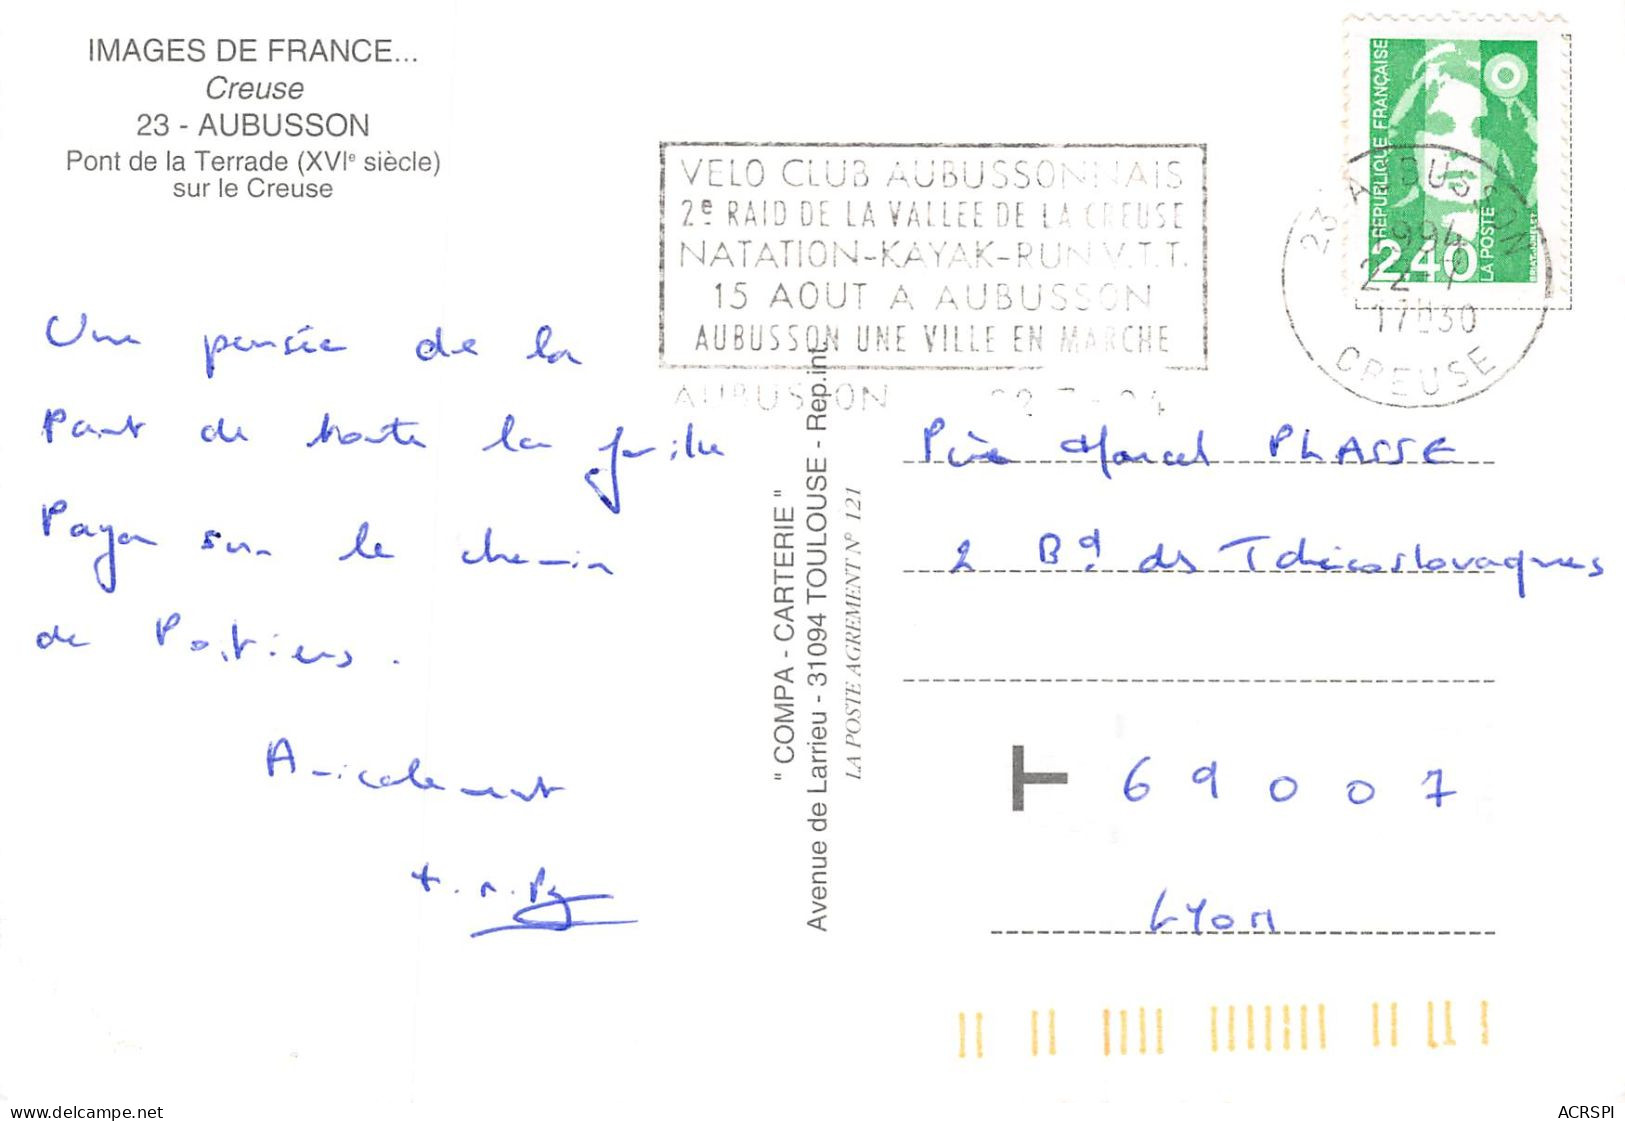 IMAGES DE FRANCE...
Creuse
23 - AUBUSSON
Pont de la Terrade (XVIe siècle)
sur le Creuse
REPUBLIQUE FRANÇAISE
2,40
LA POSTE
VELO CLUB AUBUSSONNAIS
2e RAID DE LA VALLEE DE LA CREUSE
NATATION-KAYAK-RUN V.T.T.
15 AOUT A AUBUSSON
AUBUSSON UNE VILLE EN MARCHE
AUBUSSON 22-7-94
23 AUBUSSON
1994
22-7
17H30
CREUSE
Une pensée de la
Part de toute la famille
Paya sur le chemin
de Poitiers.
Amicalement
" COMPA - CARTERIE "
Avenue de Larrieu - 31094 TOULOUSE - Rep.int.
LA POSTE AGREMENT N° 121
Père Marcel PLASSE
2 Bd des Tchécoslovaques
69007
Lyon
delcampe.net
ACRSPI